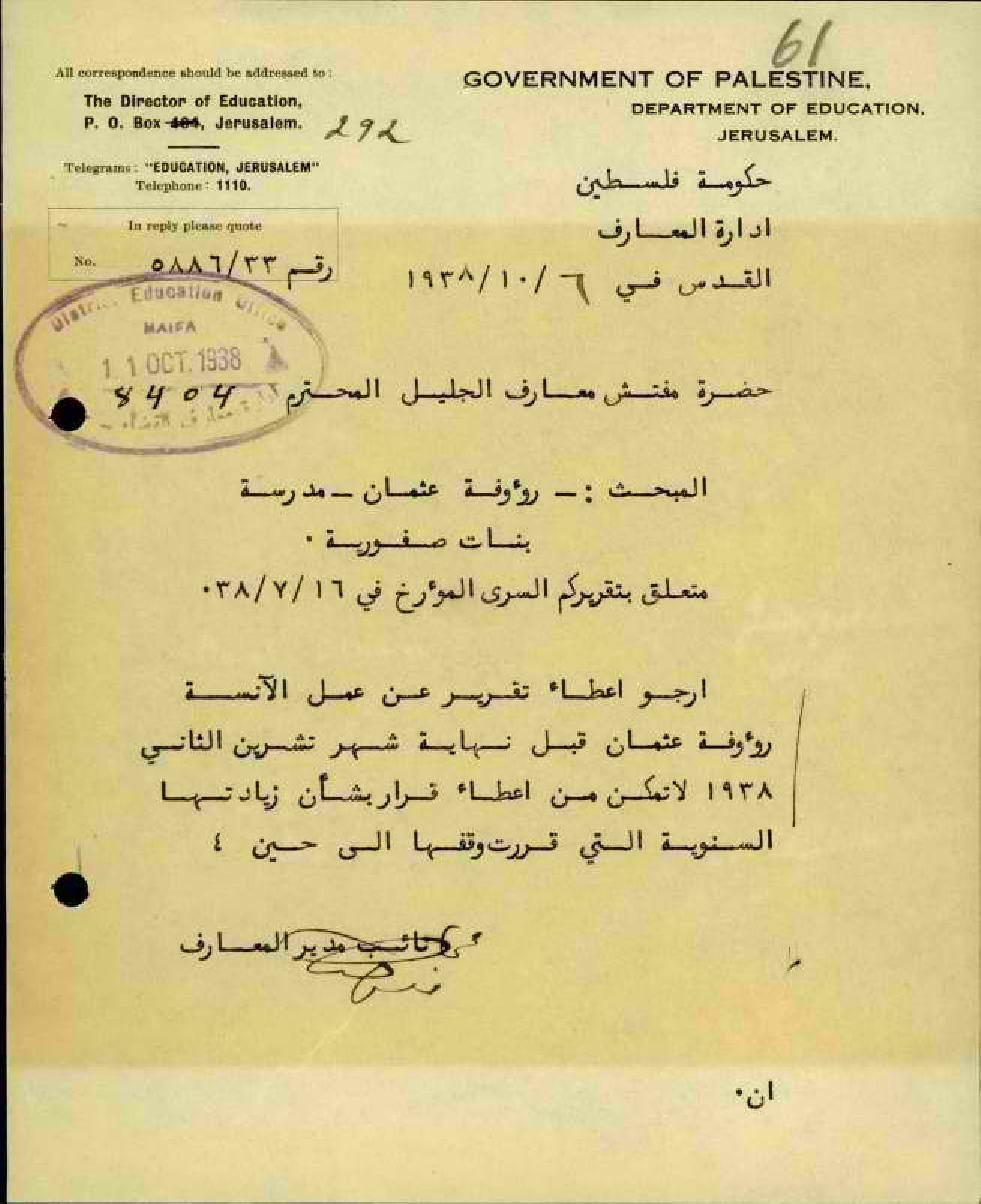 61
All correspondence should be addressed to :
The Director of Education,
P. O. Box 404, Jerusalem.
292
Telegrams : "EDUCATION, JERUSALEM"
Telephone : 1110.
In reply please quote
No. رقم ٥٨٨٦/٣٣
GOVERNMENT OF PALESTINE.
DEPARTMENT OF EDUCATION,
JERUSALEM.
حكومة فلسطين
ادارة المعارف
القدس في ٦ /١٩٣٨/١٠
District Education Office
HAIFA
11 OCT. 1938
8404
حضرة مفتش معارف الجليل المحترم
المبحث :ـ روٴوفة عثمان ـ مدرسة
بنات صفورية ٠
متعلق بتقريركم السرى الموٴرخ في ٣٨/٧/١٦٠
ارجو اعطاء تقرير عن عمل الآنسة
روٴوفة عثمان قبل نهاية شهر تشرين الثاني
١٩٣٨ لاتمكن من اعطاء قرار بشأن زيادتها
السنوية التي قررت وقفها الى حين ؛
نائب مدير المعارف
ان٠